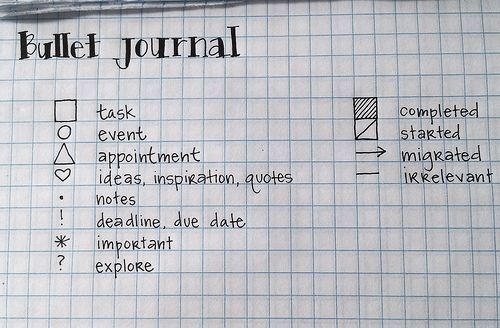 Bullet journal
task
event
appointment
ideas, inspiration, quotes
• notes
! deadline, due date
* important
? explore
completed
started
→ migrated
— irrelevant